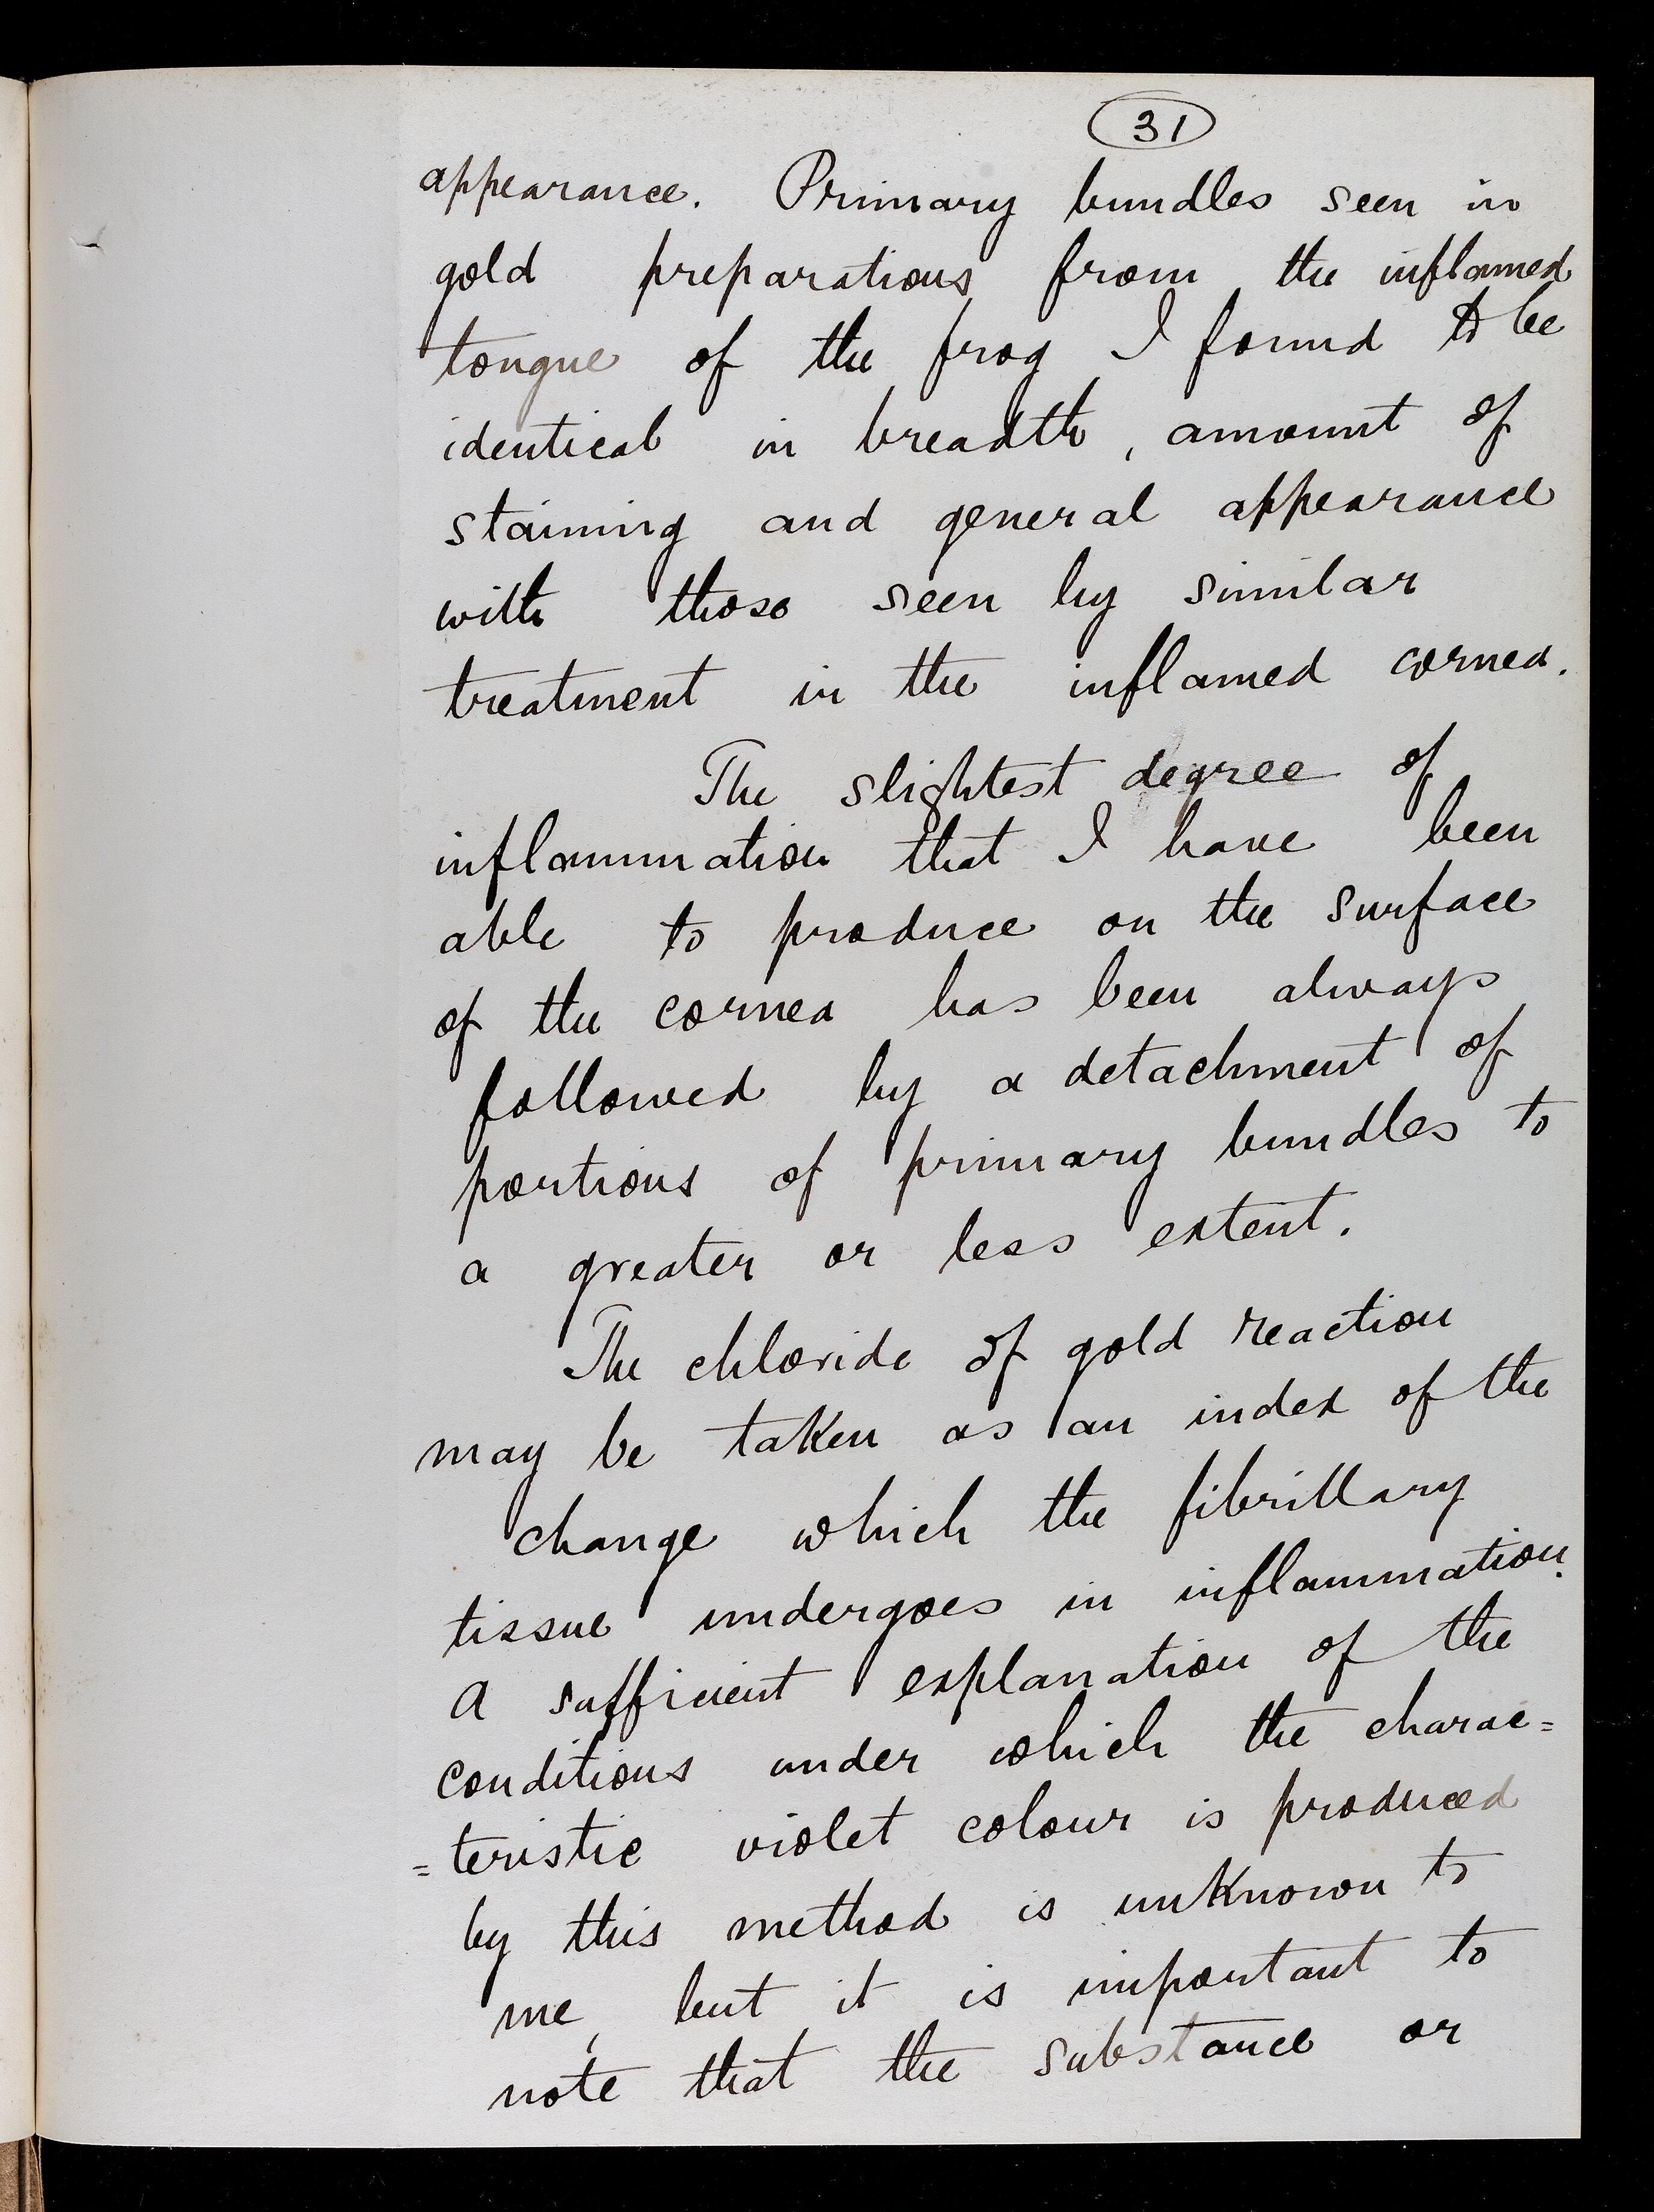 31
appearance. Primary bundles seen in
gold preparations from the inflamed
tongue of the frog I found to be
identical in breadth, amount of
staining and general appearance
with those seen by similar
treatment in the inflamed cornea.
The slightest degree of
inflammation that I have been
able to produce on the surface
of the cornea has been always
followed by a detachment of
portions of primary bundles to
a greater or less extent.
The chloride of gold reaction
may be taken as an index of the
change which the fibrillary
tissue undergoes in inflammation.
A sufficient explanation of the
conditions under which the charac=
=teristic violet colour is produced
by this method is unknown to
me, but it is important to
note that the substance or